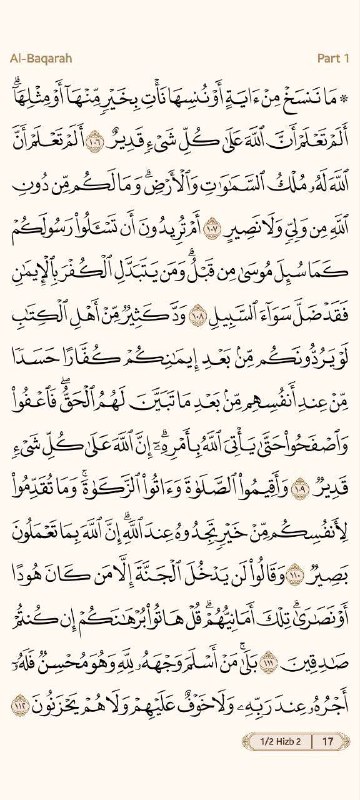 Al-Baqarah
Part 1
۞ مَا نَنسَخۡ مِنۡ ءَايَةٍ أَوۡ نُنسِهَا نَأۡتِ بِخَيۡرٖ مِّنۡهَآ أَوۡ مِثۡلِهَآۗ
أَلَمۡ تَعۡلَمۡ أَنَّ ٱللَّهَ عَلَىٰ كُلِّ شَيۡءٖ قَدِيرٌ ١٠٦ أَلَمۡ تَعۡلَمۡ أَنَّ
ٱللَّهَ لَهُۥ مُلۡكُ ٱلسَّمَٰوَٰتِ وَٱلۡأَرۡضِۗ وَمَا لَكُم مِّن دُونِ
ٱللَّهِ مِن وَلِيّٖ وَلَا نَصِيرٍ ١٠٧ أَمۡ تُرِيدُونَ أَن تَسۡـَٔلُواْ رَسُولَكُمۡ
كَمَا سُئِلَ مُوسَىٰ مِن قَبۡلُۗ وَمَن يَتَبَدَّلِ ٱلۡكُفۡرَ بِٱلۡإِيمَٰنِ
فَقَدۡ ضَلَّ سَوَآءَ ٱلسَّبِيلِ ١٠٨ وَدَّ كَثِيرٞ مِّنۡ أَهۡلِ ٱلۡكِتَٰبِ
لَوۡ يَرُدُّونَكُم مِّنۢ بَعۡدِ إِيمَٰنِكُمۡ كُفَّارًا حَسَدٗا
مِّنۡ عِندِ أَنفُسِهِم مِّنۢ بَعۡدِ مَا تَبَيَّنَ لَهُمُ ٱلۡحَقُّۖ فَٱعۡفُواْ
وَٱصۡفَحُواْ حَتَّىٰ يَأۡتِيَ ٱللَّهُ بِأَمۡرِهِۦٓۗ إِنَّ ٱللَّهَ عَلَىٰ كُلِّ شَيۡءٖ
قَدِيرٞ ١٠٩ وَأَقِيمُواْ ٱلصَّلَوٰةَ وَءَاتُواْ ٱلزَّكَوٰةَۚ وَمَا تُقَدِّمُواْ
لِأَنفُسِكُم مِّنۡ خَيۡرٖ تَجِدُوهُ عِندَ ٱللَّهِۗ إِنَّ ٱللَّهَ بِمَا تَعۡمَلُونَ
بَصِيرٞ ١١٠ وَقَالُواْ لَن يَدۡخُلَ ٱلۡجَنَّةَ إِلَّا مَن كَانَ هُودًا
أَوۡ نَصَٰرَىٰۗ تِلۡكَ أَمَانِيُّهُمۡۗ قُلۡ هَاتُواْ بُرۡهَٰنَكُمۡ إِن كُنتُمۡ
صَٰدِقِينَ ١١١ بَلَىٰۚ مَنۡ أَسۡلَمَ وَجۡهَهُۥ لِلَّهِ وَهُوَ مُحۡسِنٞ فَلَهُۥٓ
أَجۡرُهُۥ عِندَ رَبِّهِۦ وَلَا خَوۡفٌ عَلَيۡهِمۡ وَلَا هُمۡ يَحۡزَنُونَ ١١٢
1/2 Hizb 2 | 17